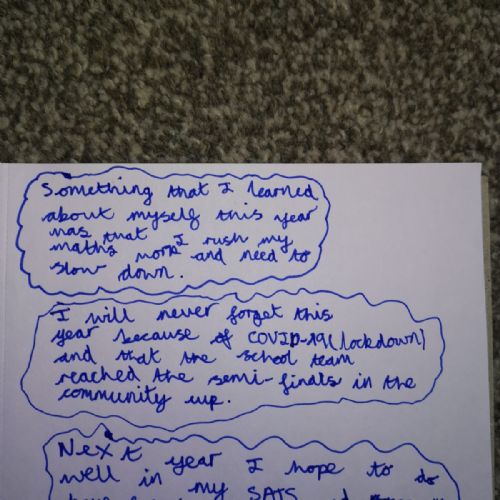 Something that I learned
about myself this year
was that I rush my
maths work and need to
slow down.
I will never forget this
year because of COVID-19(lockdown)
and that the school team
reached the semi-finals in the
community cup.
Next year I hope to do
well in my SATS